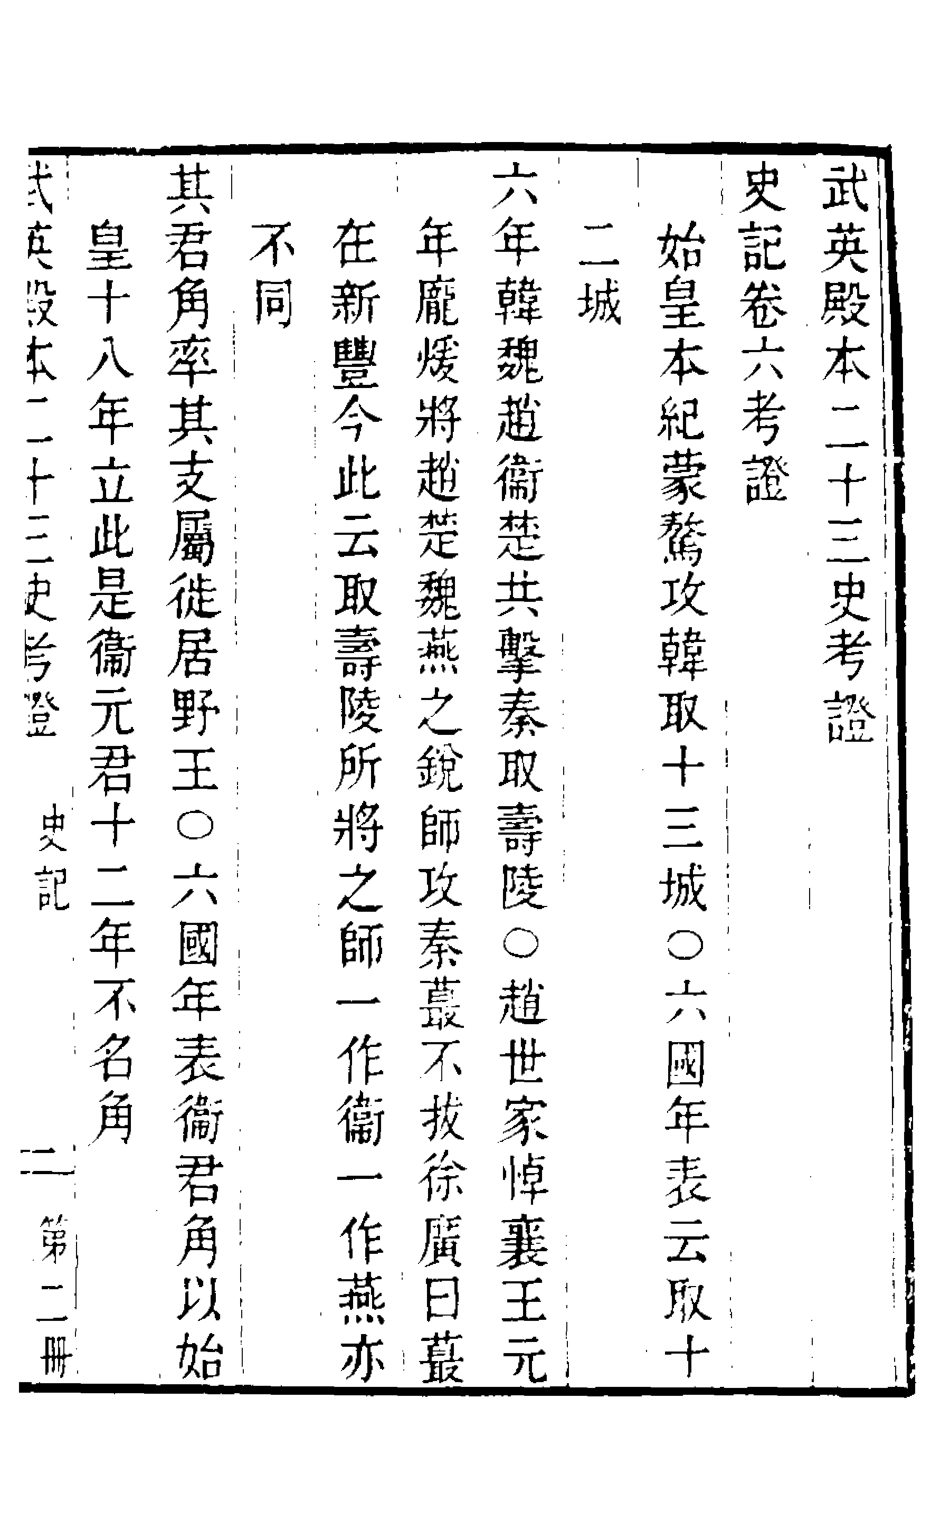 武英殿本二十三史考證
史記卷六考證
始皇本紀蒙驁攻韓取十三城○六國年表云取十
二城
六年韓魏趙衞楚共擊秦取壽陵○趙世家悼襄王元
年龐煖將趙楚魏燕之銳師攻秦蕞不拔徐廣曰蕞
在新豐今此云取壽陵所將之師一作衞一作燕亦
不同
其君角率其支屬徙居野王○六國年表衞君角以始
皇十八年立此是衞元君十二年不名角
武英殿本二十三史考證 史記 二 第二冊